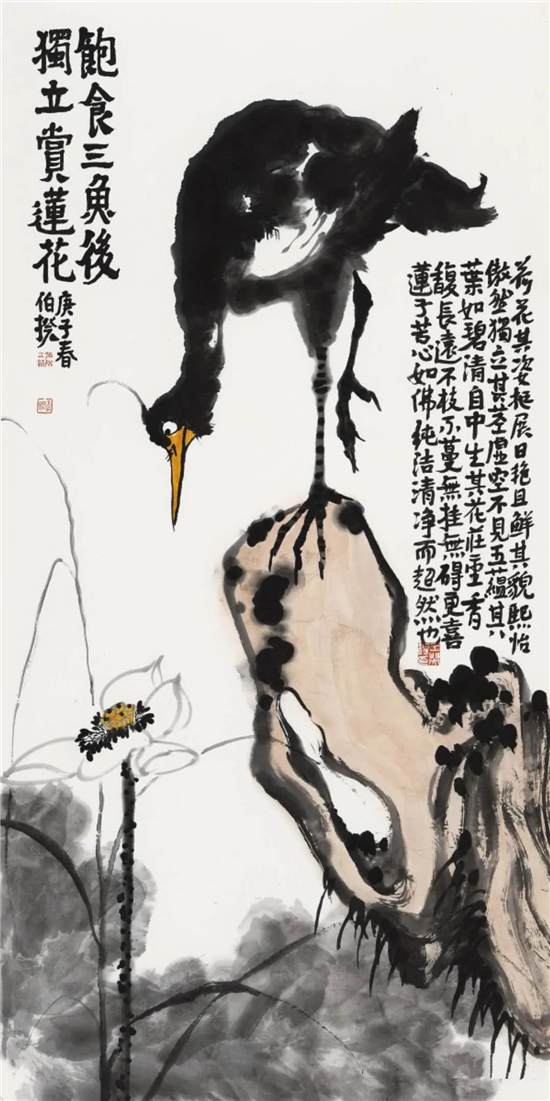 飽食三魚後
獨立賞蓮花
庚子春
伯揆
荷花其姿挺展日艳且鮮其貌熙怡
傲然獨立其莖虛空不見五蘊其
葉如碧清自中生其花莊重香
馥長遠不枝不蔓無挂無礙更喜
蓮子苦心如佛純洁清净而超然也